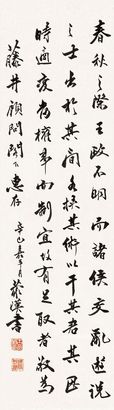 春秋之際王政不明而諸侯交亂遊說
之士出於其間各挾其術以干其君其因
時適變當權事而制宜故有足取者敬為
藤井顧問閣下惠存
辛巳 月